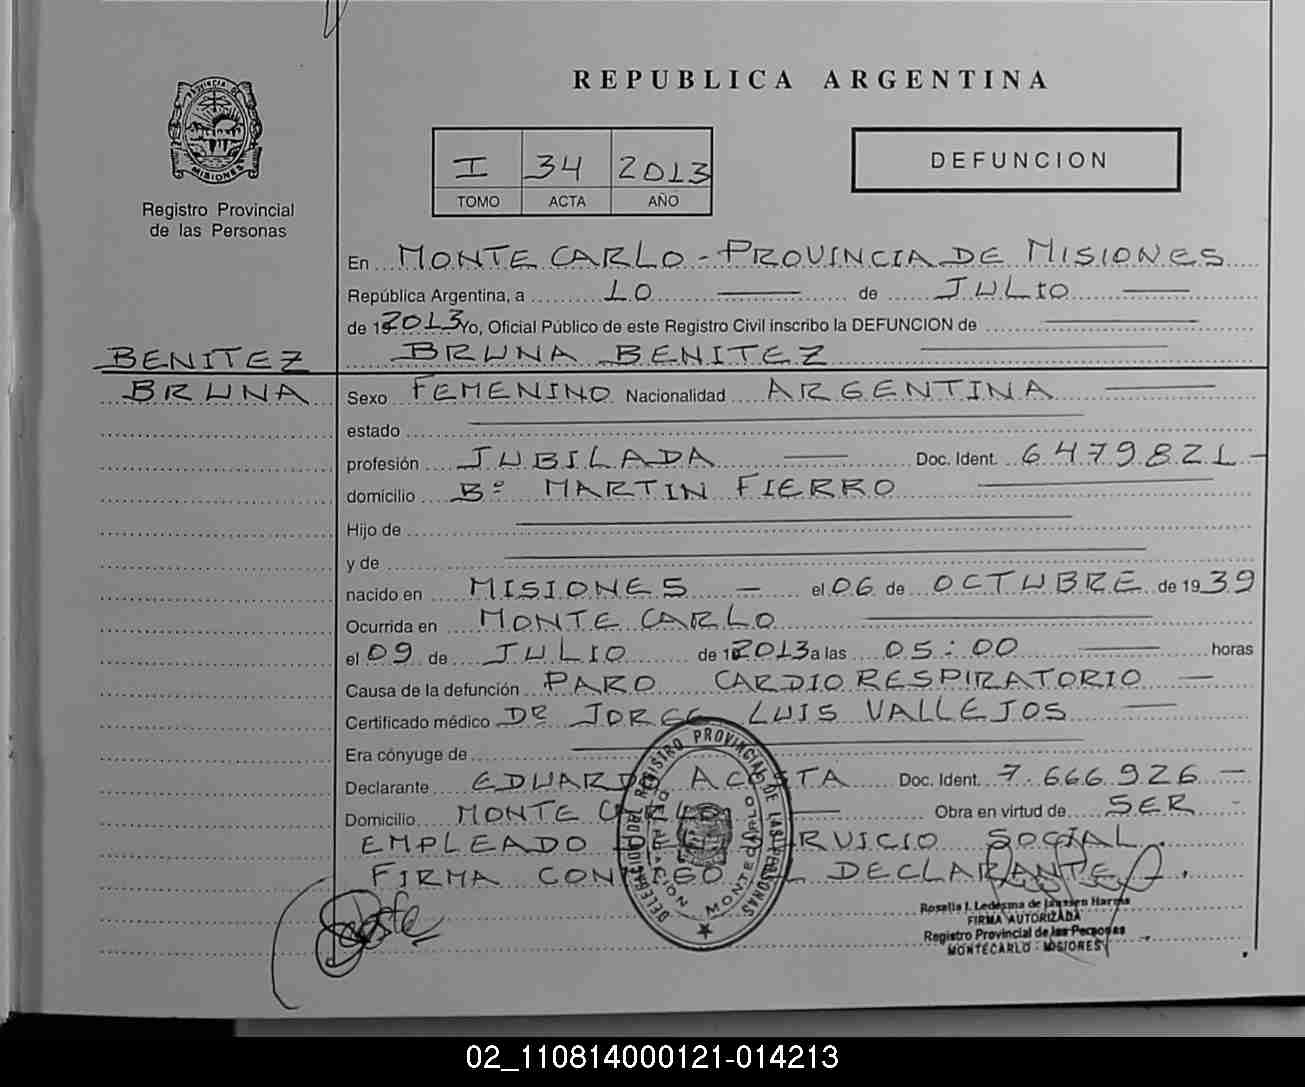 REPUBLICA ARGENTINA
PROVINCIA DE
MISIONES
Registro Provincial
de las Personas
I 34 2013
TOMO ACTA AÑO
DEFUNCION
En MONTE CARLO - PROVINCIA DE MISIONES
República Argentina, a 10 de JULIO
de 19 2013 Yo, Oficial Público de este Registro Civil inscribo la DEFUNCION de
BENITEZ
BRUNA BENITEZ
BRUNA
Sexo FEMENINO Nacionalidad ARGENTINA
estado
profesión JUBILADA Doc. Ident. 6479821 -
domicilio Bº MARTIN FIERRO
Hijo de
y de
nacido en MISIONES - el 06 de OCTUBRE de 1939
Ocurrida en MONTE CARLO
el 09 de JULIO de 2013 a las 05:00 horas
Causa de la defunción PARO CARDIORESPIRATORIO -
Certificado médico Dr JORGE LUIS VALLEJOS
Era cónyuge de
Declarante EDUARDO ACOSTA Doc. Ident. 7.666.926 -
Domicilio MONTE CARLO Obra en virtud de SER
EMPLEADO SERVICIO SOCIAL.
FIRMA CONMIGO EL DECLARANTE.
REGISTRO PROVINCIAL DE LAS PERSONAS
DELEGACION MONTECARLO
Rosalia I. Ledesma de Janssen Harms
FIRMA AUTORIZADA
Registro Provincial de las Personas
MONTECARLO - MISIONES
02_110814000121-014213